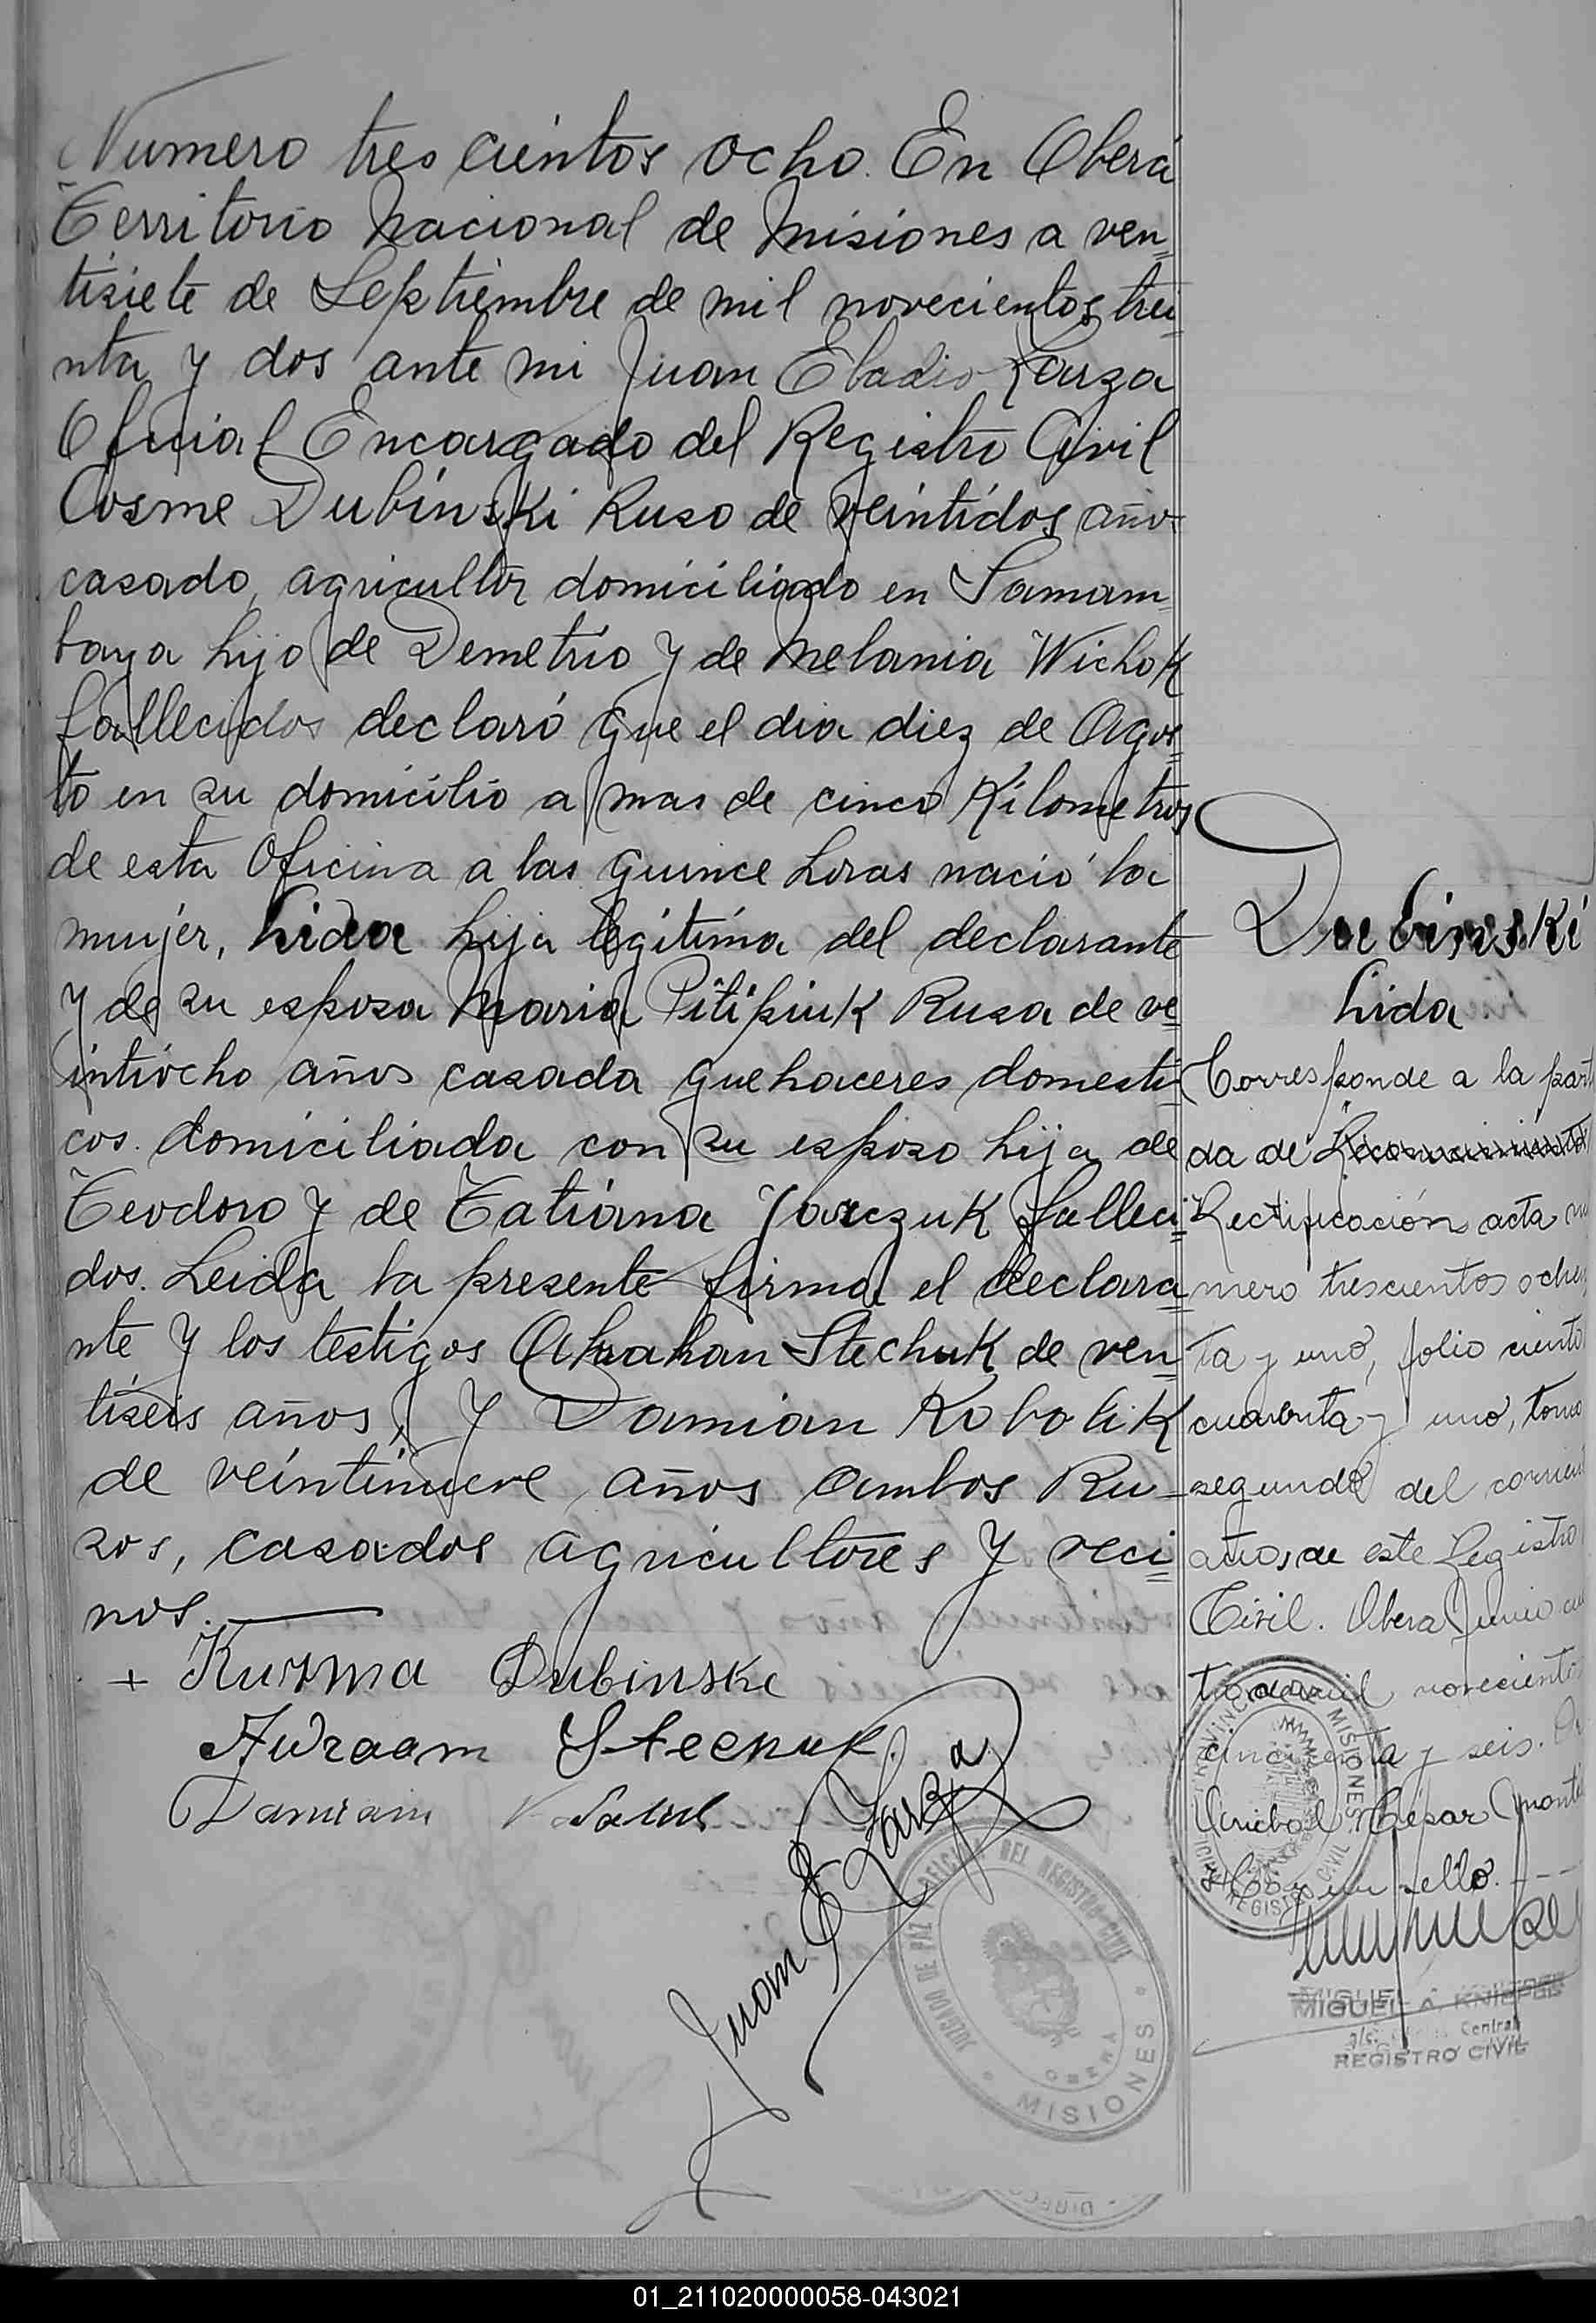 Numero tres cientos ocho. En Oberá
Territorio Nacional de Misiones a ven=
tisiete de Septiembre de mil novecientos trei=
nta y dos ante mi Juan Eladio Zarza
Oficial Encargado del Registro Civil
Cosme Dubinski Ruso de veintidos años
casado, agricultor domiciliado en Samam=
baya hijo de Demetrio y de Melania Wichok
fallecidos declaró que el dia diez de Agos=
to en su domicilio a mas de cinco Kilometros
de esta Oficina a las quince horas nació la
mujer, Lida hija legítima del declarante
y de su esposa Maria Pitipiuk Rusa de ve=
intiocho años casada quehaceres domesti=
cos. domiciliada con su esposo hija de
Teodoro y de Tatiana Jarczuk falleci=
dos. Leida la presente firma el declara=
nte y los testigos Abrahan Stechuk de ven=
tiseis años, y Damian Kobolik
de veintinueve años ambos Ru=
sos, casados agricultores y veci=
nos.
+ Kuzma Dubinske
Awraam Stecnuk.
Damian
Juan E Zarza
JUZGADO DE PAZ Y OFICINA DEL REGISTRO CIVIL
OBERA
MISIONES
Dubinski
Lida
Corresponde a la parti
da de Reconocimiento
Rectificación acta nu
mero trescientos ochen
ta y uno, folio ciento
cuarenta y uno, tomo
segundo del corriente
años de este Registro
Civil. Obera Junio cua
tro de mil novecientos
cincuenta y seis.
Anibal César
Hay un sello. ---
PROVINCIA DE MISIONES
REGISTRO CIVIL
MIGUEL A. KNIEPER
Central
REGISTRO CIVIL
01_211020000058-043021